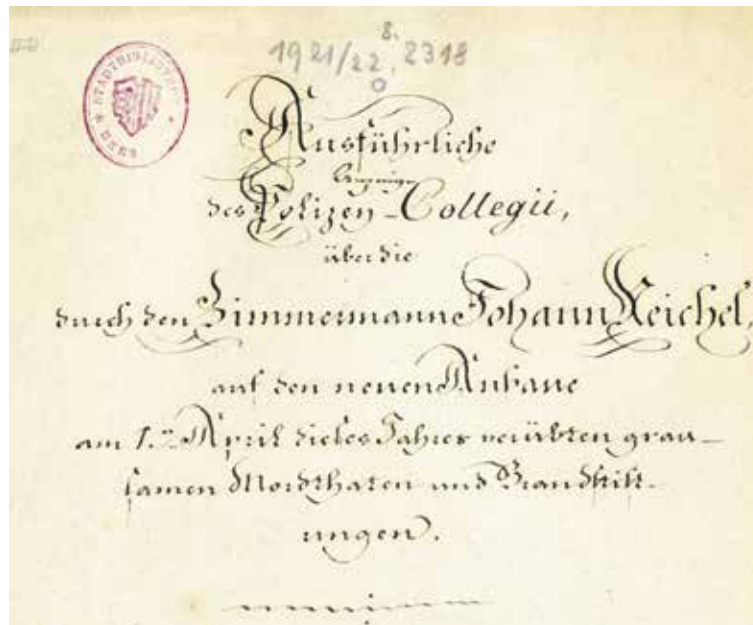 8.
1921/22, 2318
STADTBIBLIOTHEK
Ausführliche
Anzeige
des Polizey-Collegii,
über die
durch den Zimmermann Johann Reichel,
auf den neuen Anbaue
am 1.ten April dieses Jahres verübten grau-
samen Mordthaten und Brandstift-
ungen.